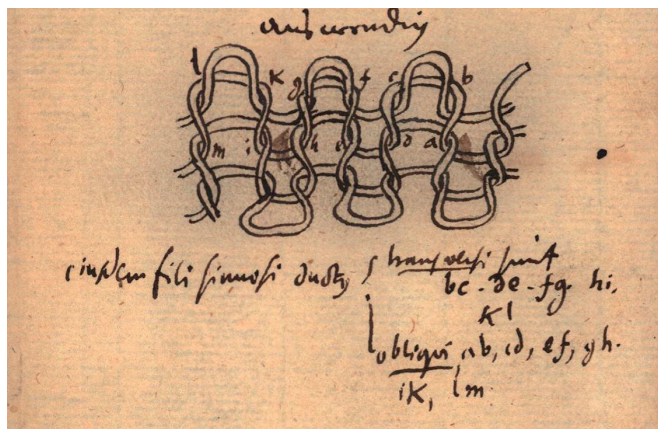 l k g f c b
m i h e d a
eiusdem fili sinuosi ductus transversi sunt
bc - de - fg. hi,
Kl
obliqui ab, cd, ef, gh.
iK, lm